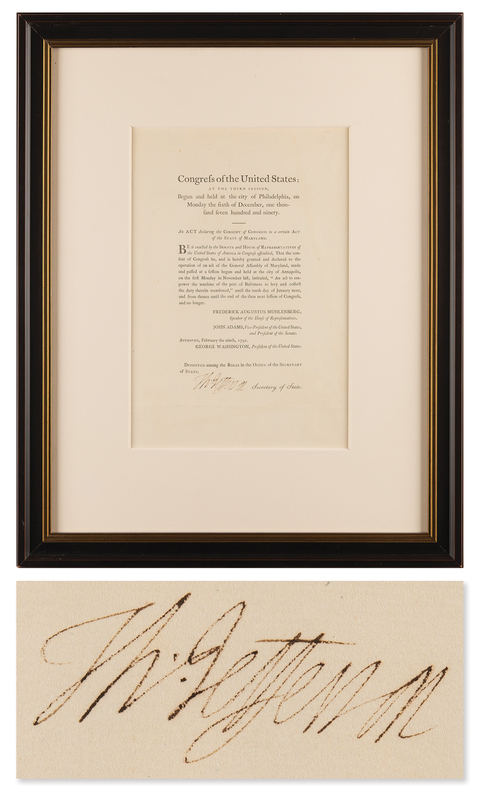 Congreſs of the United States:
AT THE THIRD SESSION,
Begun and held at the city of Philadelphia, on
Monday the ſixth of December, one thou-
ſand ſeven hundred and ninety.
An ACT declaring the Conſent of Congreſs to a certain Act
of the State of Maryland.
BE it enacted by the Senate and Houſe of Repreſentatives of
the United States of America in Congreſs aſſembled, That the con-
ſent of Congreſs be, and is hereby granted and declared to the
operation of an act of the General Aſſembly of Maryland, made
and paſſed at a ſeſſion begun and held at the city of Annapolis,
on the firſt Monday in November laſt, intituled, “ An act to em-
power the wardens of the port of Baltimore to levy and collect
the duty therein mentioned,” until the tenth day of January next,
and from thence until the end of the then next ſeſſion of Congreſs,
and no longer.
FREDERICK AUGUSTUS MUHLENBERG,
Speaker of the Houſe of Repreſentatives.
JOHN ADAMS, Vice-Preſident of the United States,
and Preſident of the Senate.
Approved, February the ninth, 1791.
GEORGE WASHINGTON, Preſident of the United States.
Deposited among the Rolls in the Office of the Secretary
of State.
Th: Jefferson Secretary of State.
Th: Jefferson